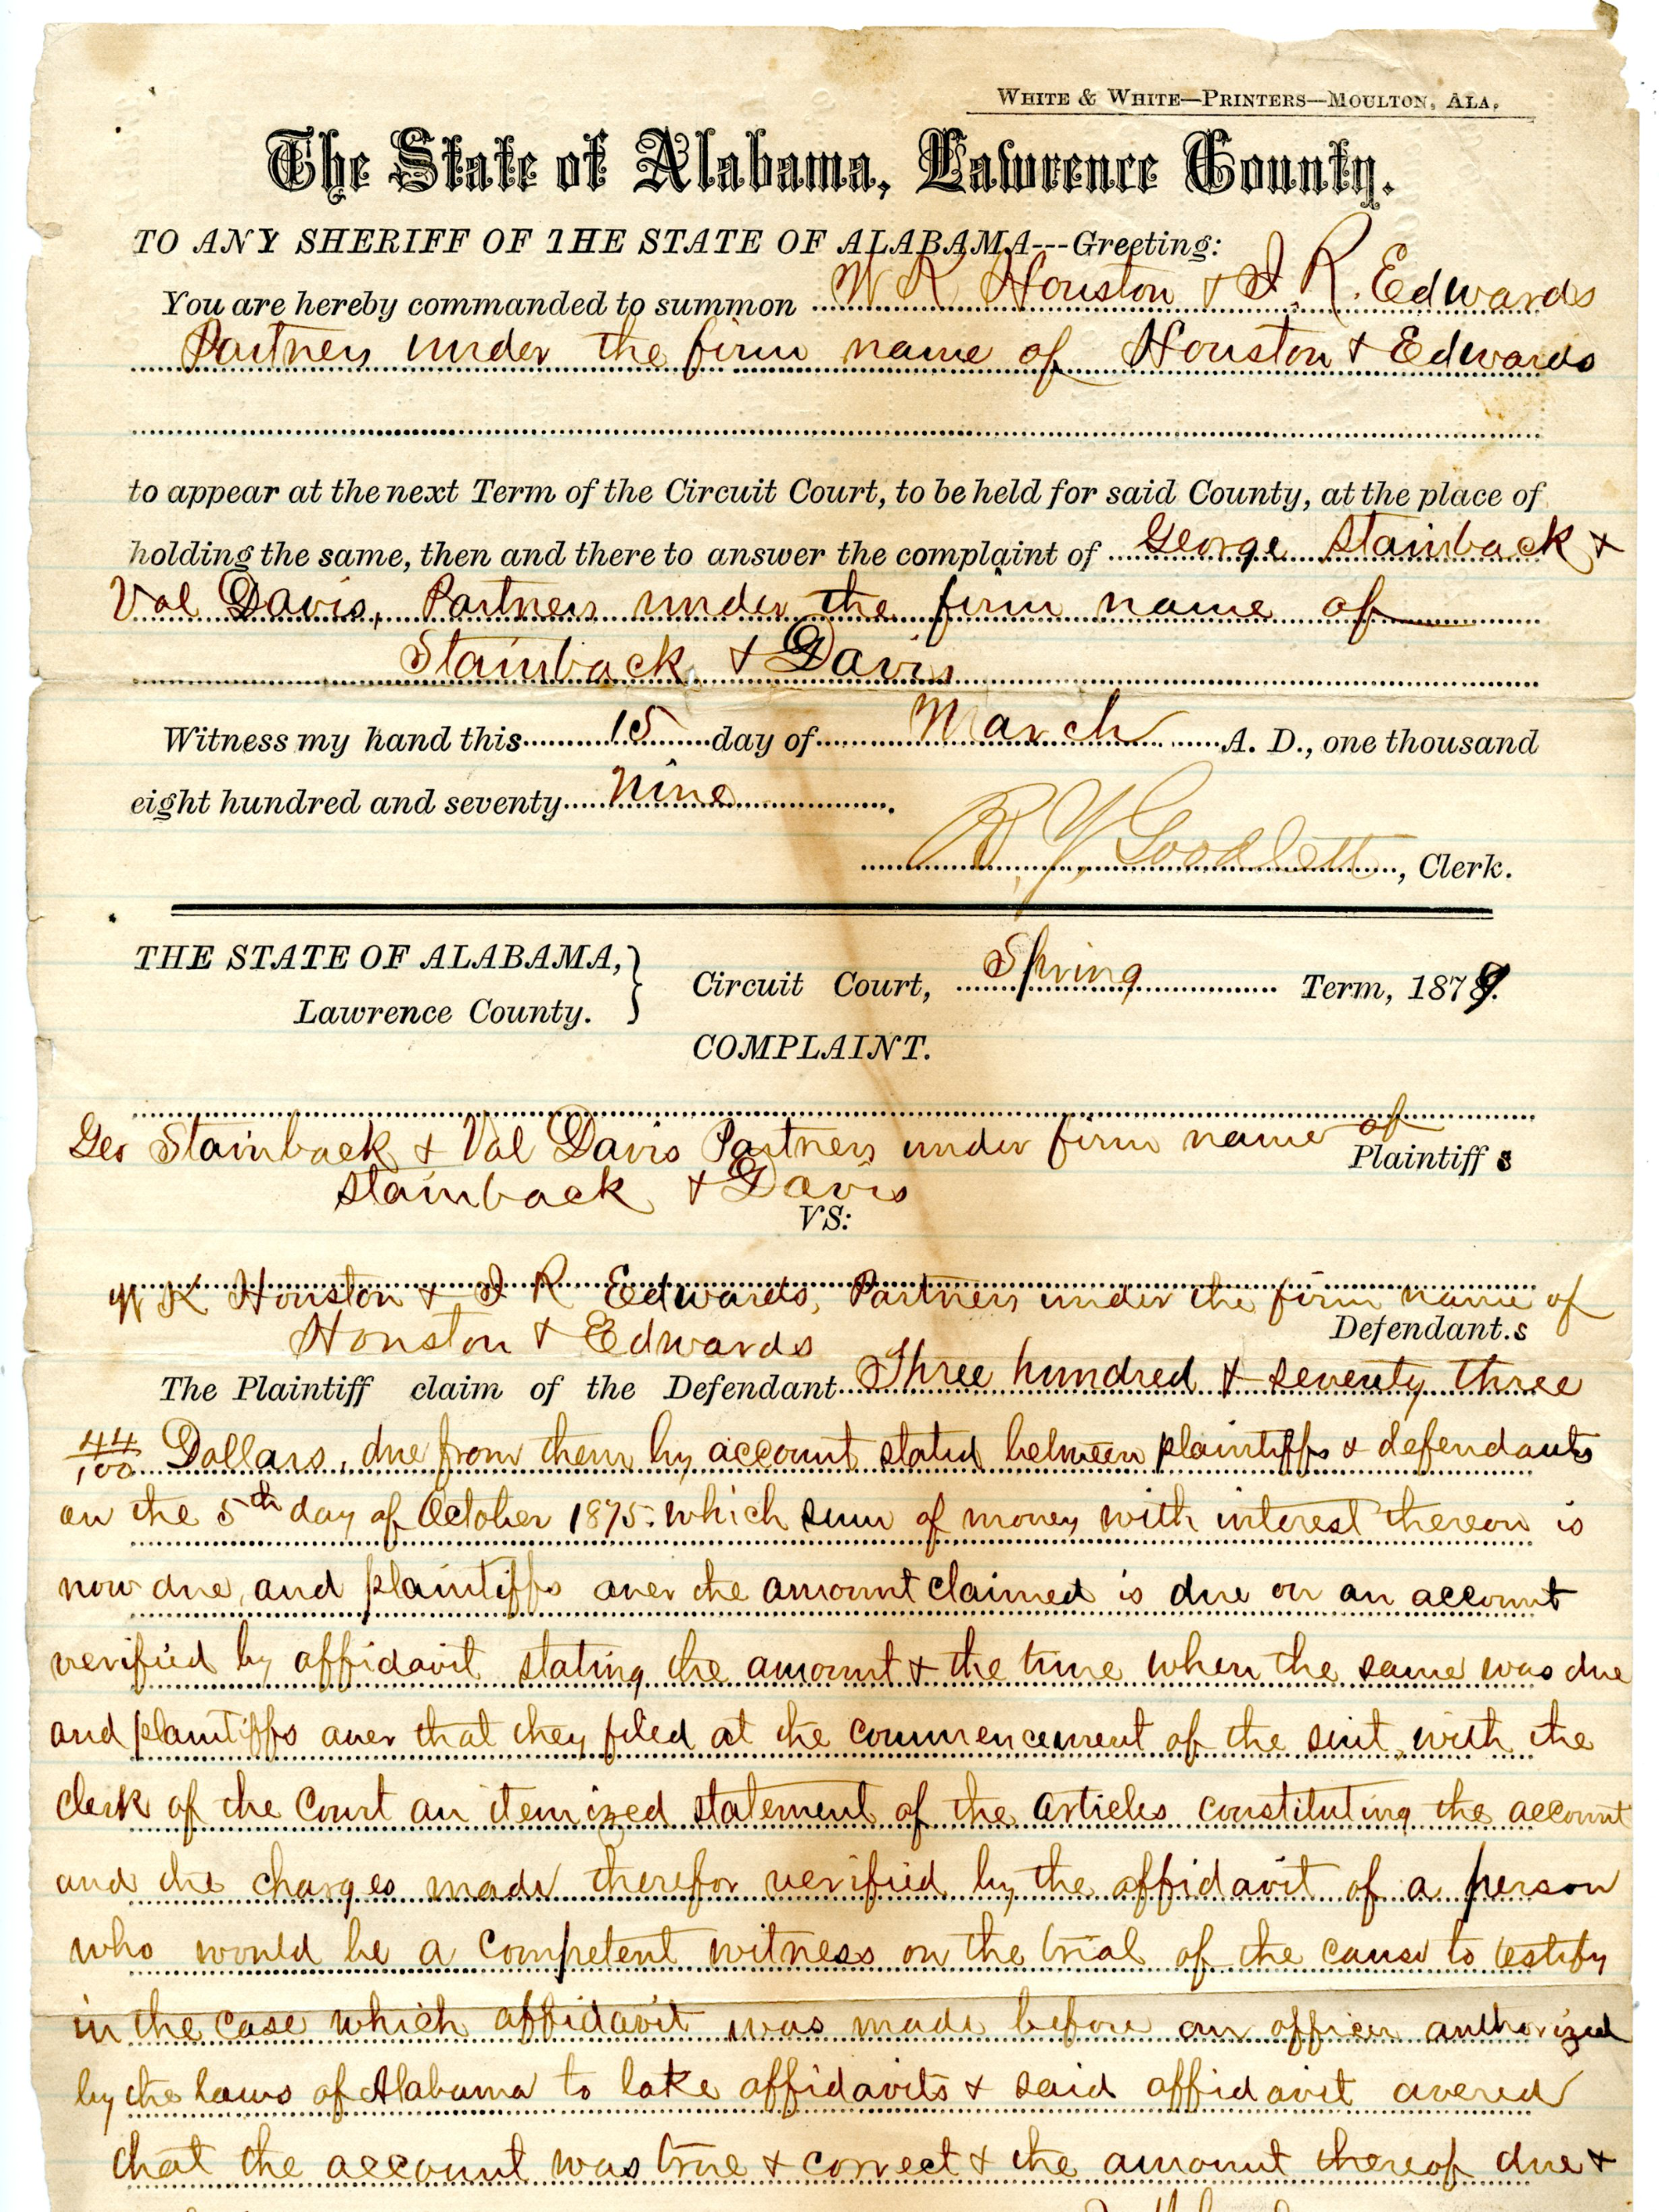 WHITE & WHITE—PRINTERS—MOULTON, ALA.
The State of Alabama, Lawrence County.
TO ANY SHERIFF OF THE STATE OF ALABAMA---Greeting:
You are hereby commanded to summon W K Houston & I. R. Edwards
Partners under the firm name of Houston & Edwards
to appear at the next Term of the Circuit Court, to be held for said County, at the place of
holding the same, then and there to answer the complaint of George Stainback &
Val Davis, Partners under the firm name of
Stainback & Davis
Witness my hand this 15 day of March A. D., one thousand
eight hundred and seventy Nine.
Goodlett, Clerk.
THE STATE OF ALABAMA, } Circuit Court, Spring Term, 1879.
Lawrence County.
COMPLAINT.
Geo Stainback & Val Davis Partners under firm name of
Plaintiffs
Stainback & Davis
VS:
W K Houston & I R Edwards, Partners under the firm name of
Houston & Edwards Defendant.s
The Plaintiff claim of the Defendant Three hundred & seventy three
44/100 Dollars, due from them by account stated between plaintiffs & defendants
on the 5th day of October 1875. which sum of money with interest thereon is
now due, and plaintiffs aver the amount claimed is due on an account
verified by affidavit stating the amount & the time when the same was due
and plaintiffs aver that they filed at the commencement of the suit, with the
clerk of the Court an itemized statement of the articles constituting the account
and the charges made therefor verified by the affidavit of a person
who would be a competent witness on the trial of the cause to testify
in the case which affidavit was made before an officer authorized
by the laws of Alabama to take affidavits & said affidavit avered
that the account was true & correct & the amount thereof due &